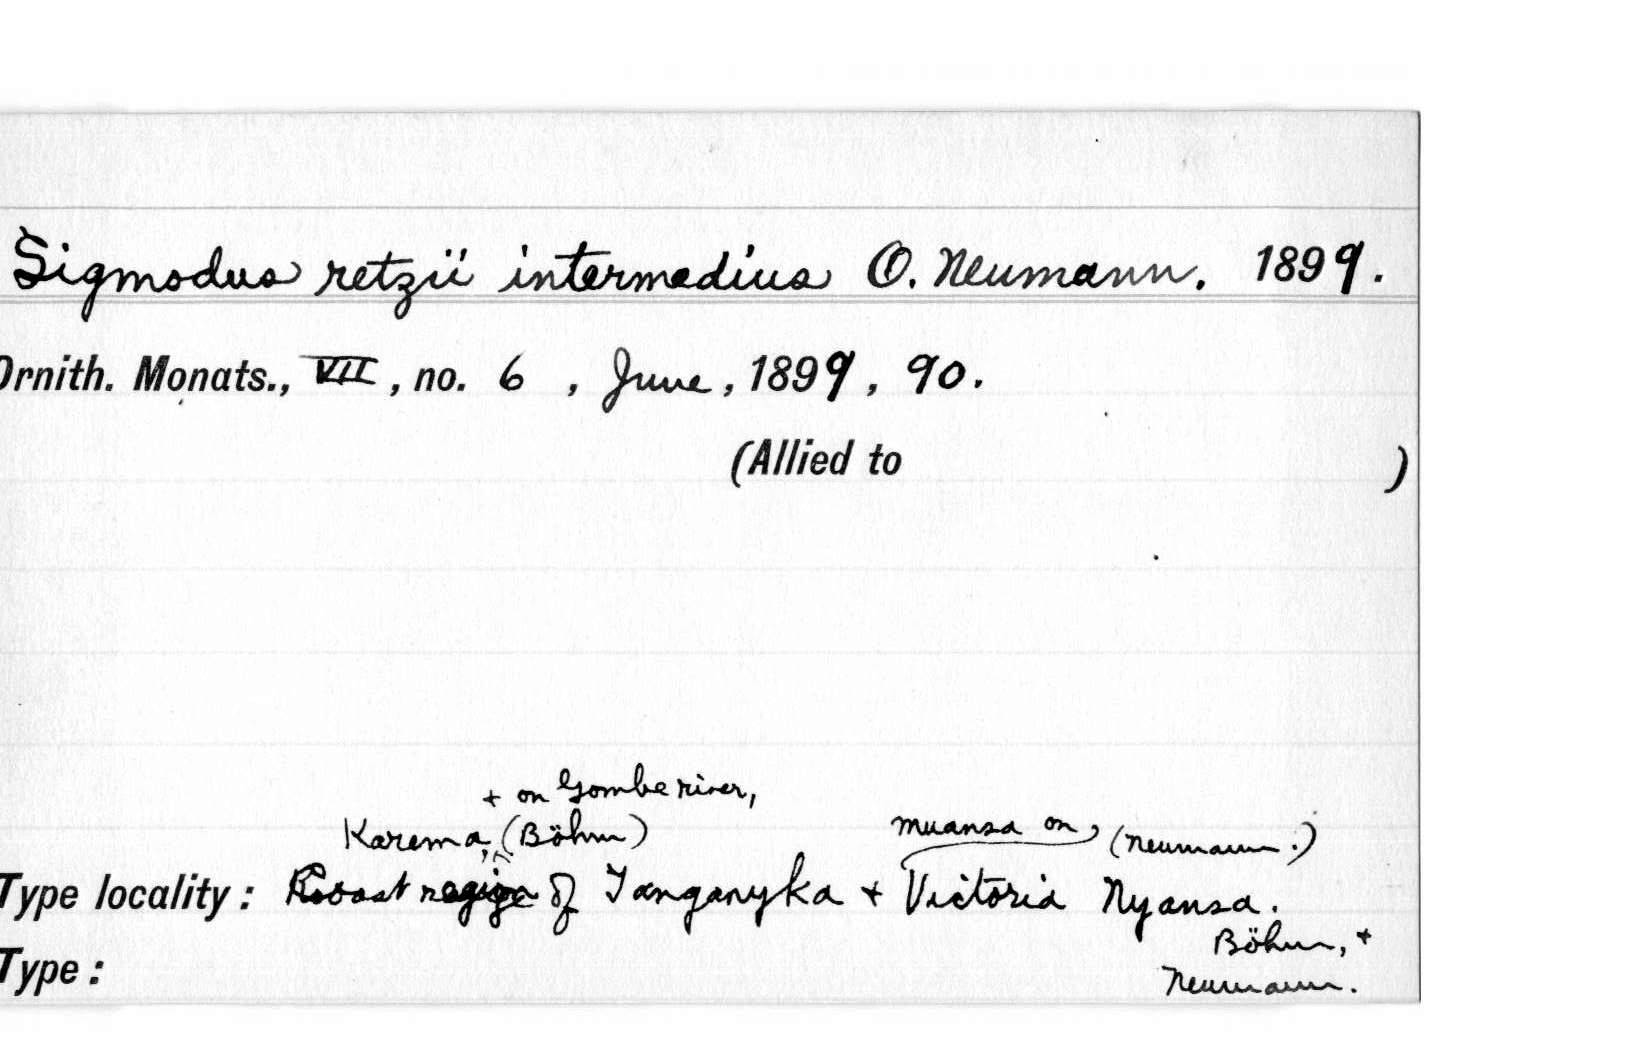 Sigmodus retzii intermedius O. Neumann. 1899.
Ornith. Monats., VII, no. 6, June, 1899, 90.
(Allied to )
+ on Gombe river,
Karema, (Böhm)
Muansa on, (Neumann.)
Type locality: region of Tanganyka + Victoria Nyansa.
Böhm, +
Type:
Neumann.